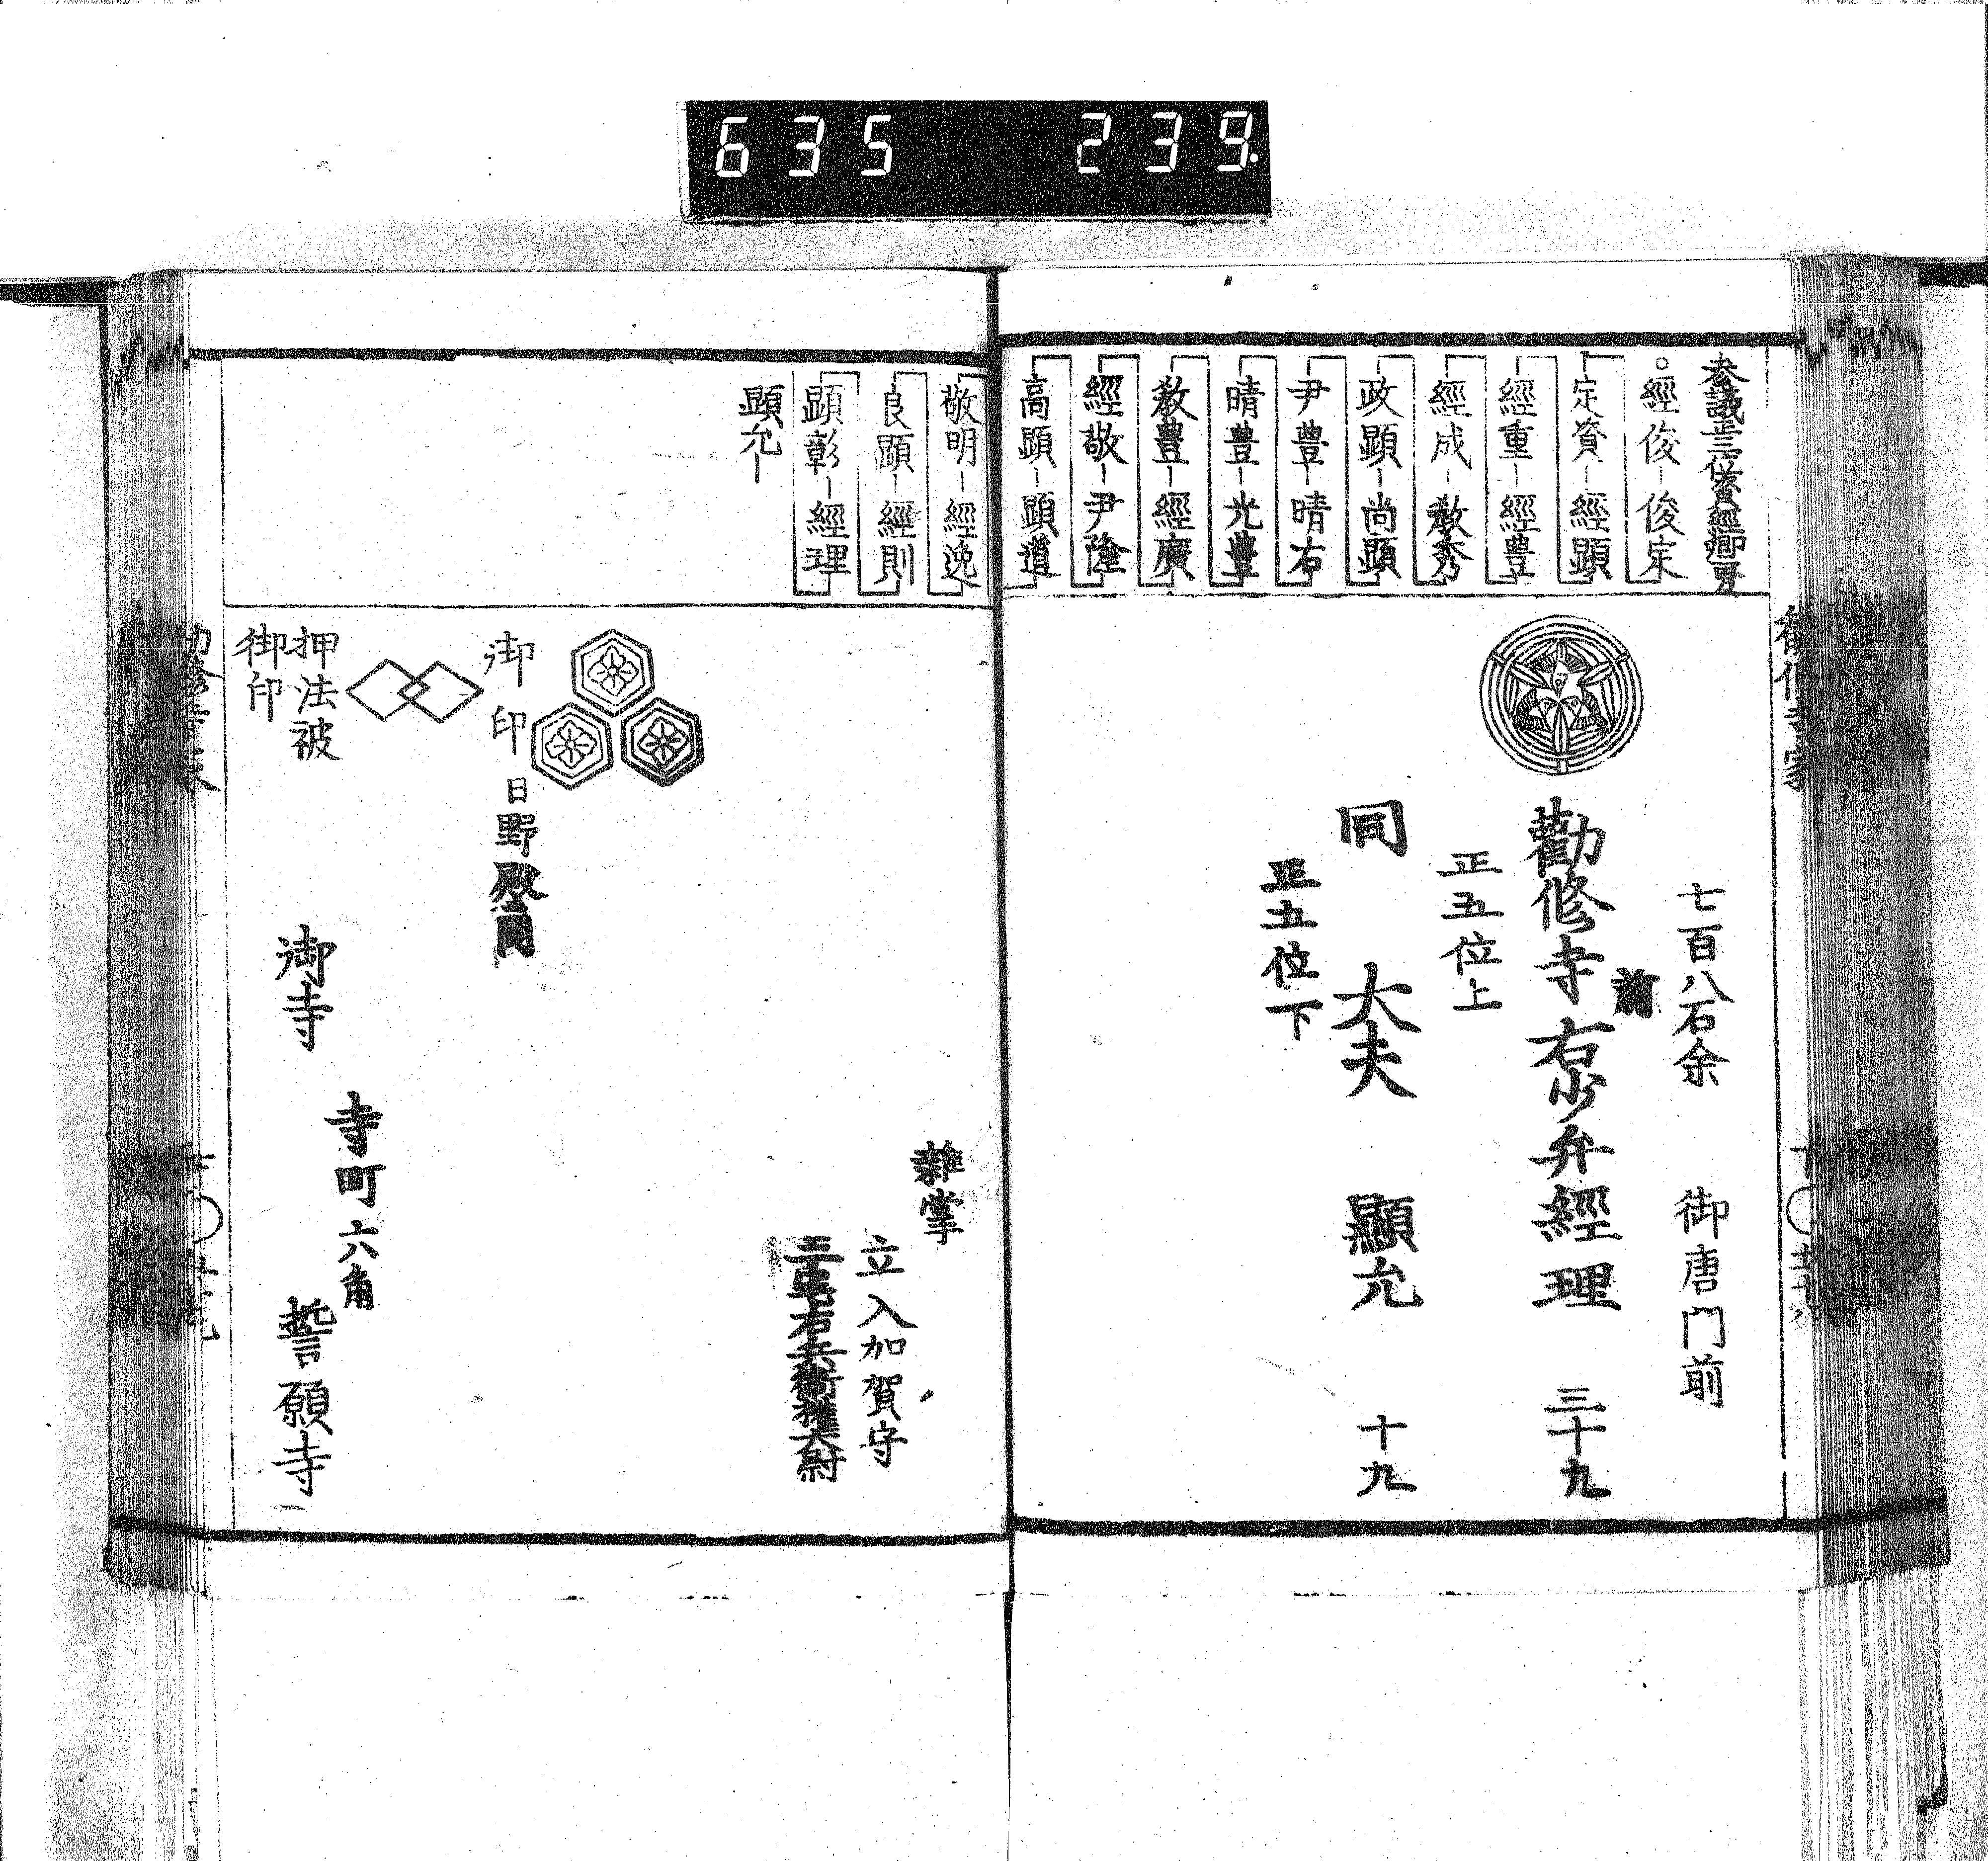 635 239.
参議正三位資經卿男
○經俊-俊定
定資-經顕
經重-經豊
經成-教秀
政顕-尚顕
尹豊-晴右
晴豊-光豊
教豊-經廣
經敬-尹隆
高顕-顕道
七百八石余 御唐門前
勸修寺 右少弁 經理 三十九
正五位上
同 大夫 顯允 十九
正五位下
敬明-經逸
良顕-經則
顕彰-經理
顕允-
雜掌
立入加賀守
御印 日野殿同
押法被
御印
御寺
寺町六角
誓願寺